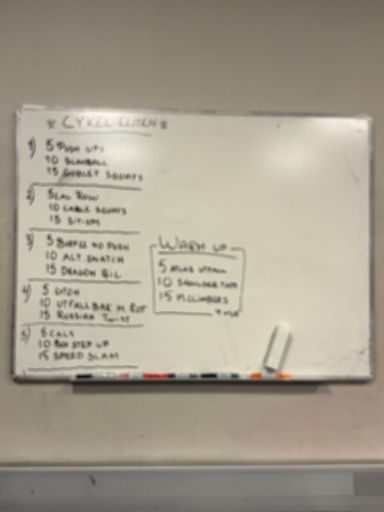 * CYKEL ELITEN *
1) 5 PUSH UPS
10 SLAMBALL
15 GOBLET SQUATS
2) 5 CAL ROW
10 SQUATS
15 SIT-UPS
3) 5 BURPEE NO PUSH
10 ALT. SNATCH
15 DRAGON
4) 5
10 UTFALL BAK M. ROT
15 RUSSIAN TWIST
5) 5 CALS
10 BOX STEP UP
15 SPEED SLAM
WARM UP
5 UTFALL
10 SHOULDER TAPS
15 M.CLIMBERS